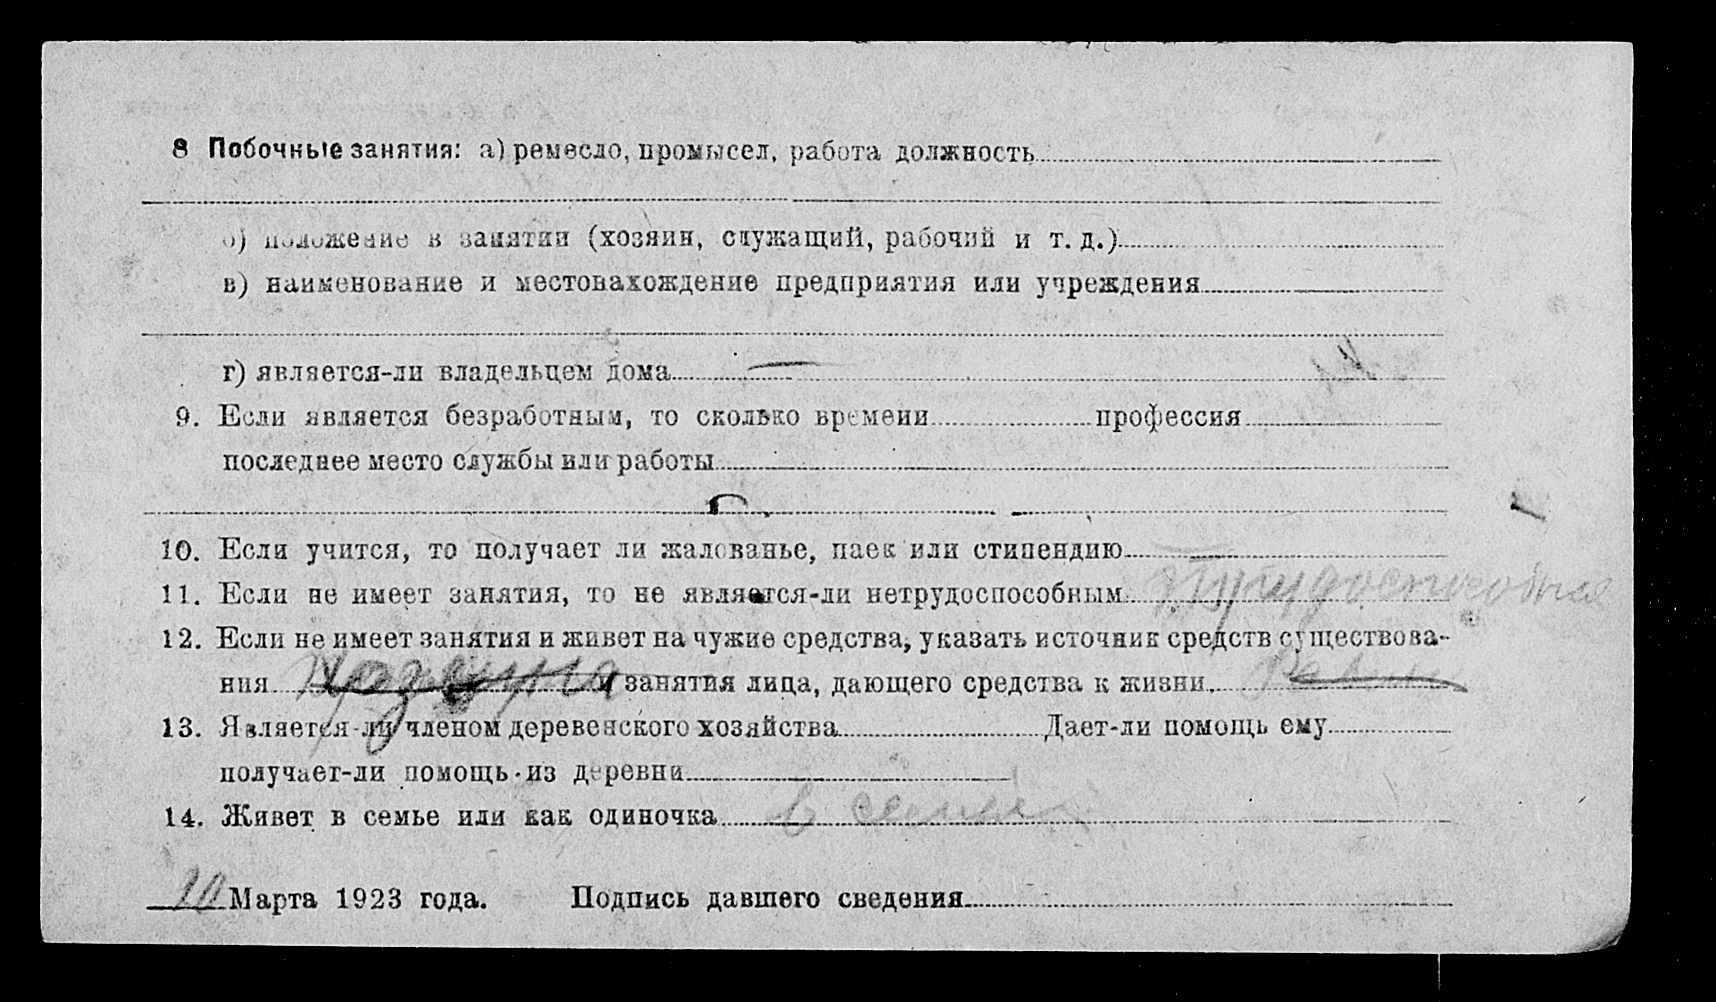 8 Побочные занятия: а) ремесло, промысел, работа должность
б) положение в занятии (хозяин, служащий, рабочий и т. д.)
в) наименование и местонахождение предприятия или учреждения
г) является-ли владельцем дома —
9. Если является безработным, то сколько времени профессия
последнее место службы или работы
10. Если учится, то получает ли жалованье, паек или стипендию
11. Если не имеет занятия, то не является-ли нетрудоспособным
12. Если не имеет занятия и живет на чужие средства, указать источник средств существова-
ния и занятия лица, дающего средства к жизни.
13. Является-ли членом деревенского хозяйства Дает-ли помощь ему
получает-ли помощь из деревни
14. Живет в семье или как одиночка в семье
10 Марта 1923 года. Подпись давшего сведения